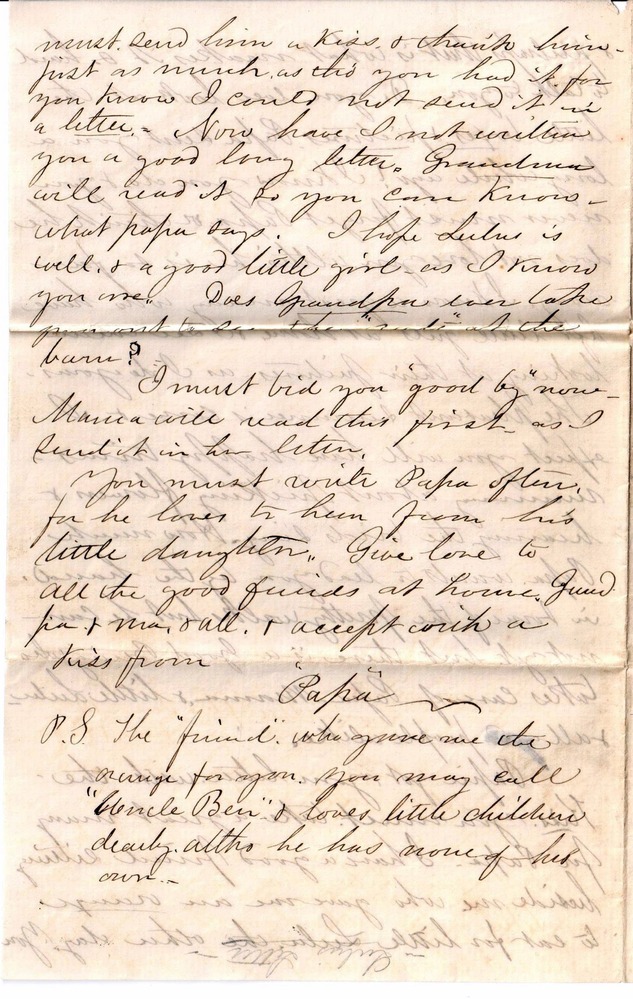 must send him a kiss & thank him -
just as much as tho you had it, for
you know I could not send it in
a letter. - Now have I not written
you a good long letter. Grandma
will read it so you can know -
what papa says. I hope Lulu is
well, & a good little girl - as I know
you are. Does Grandpa ever take
you out to see the at the
barn?
I must bid you "good by" now -
Mama will read this first - as I
send it in her letter.
You must write Papa often,
for he loves to hear from his
little daughter. Give love to
all the good friends at home. Grand
pa & ma, & all. & accept with a
kiss from
"Papa"
P.S. The "friend" who gave me the
orange for you. you may call
"Uncle Ben" & loves little children
dearly. altho he has none of his
own. -